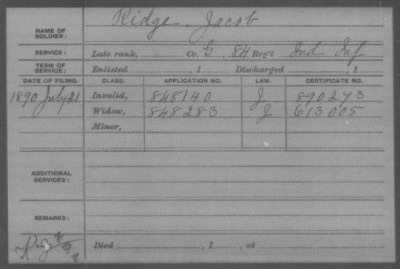 Ridge, Jacob
NAME OF SOLDIER:
SERVICE: Late rank, Co. G, 84 Reg't Ind Inf
TERM OF SERVICE: Enlisted , 1 Discharged , 1
DATE OF FILING. CLASS. APPLICATION NO. LAW. CERTIFICATE NO.
1890 July 21 Invalid, 848140 J 890273
Widow, 848283 J 613005
Minor,
ADDITIONAL SERVICES:
REMARKS:
Died , 1 , at